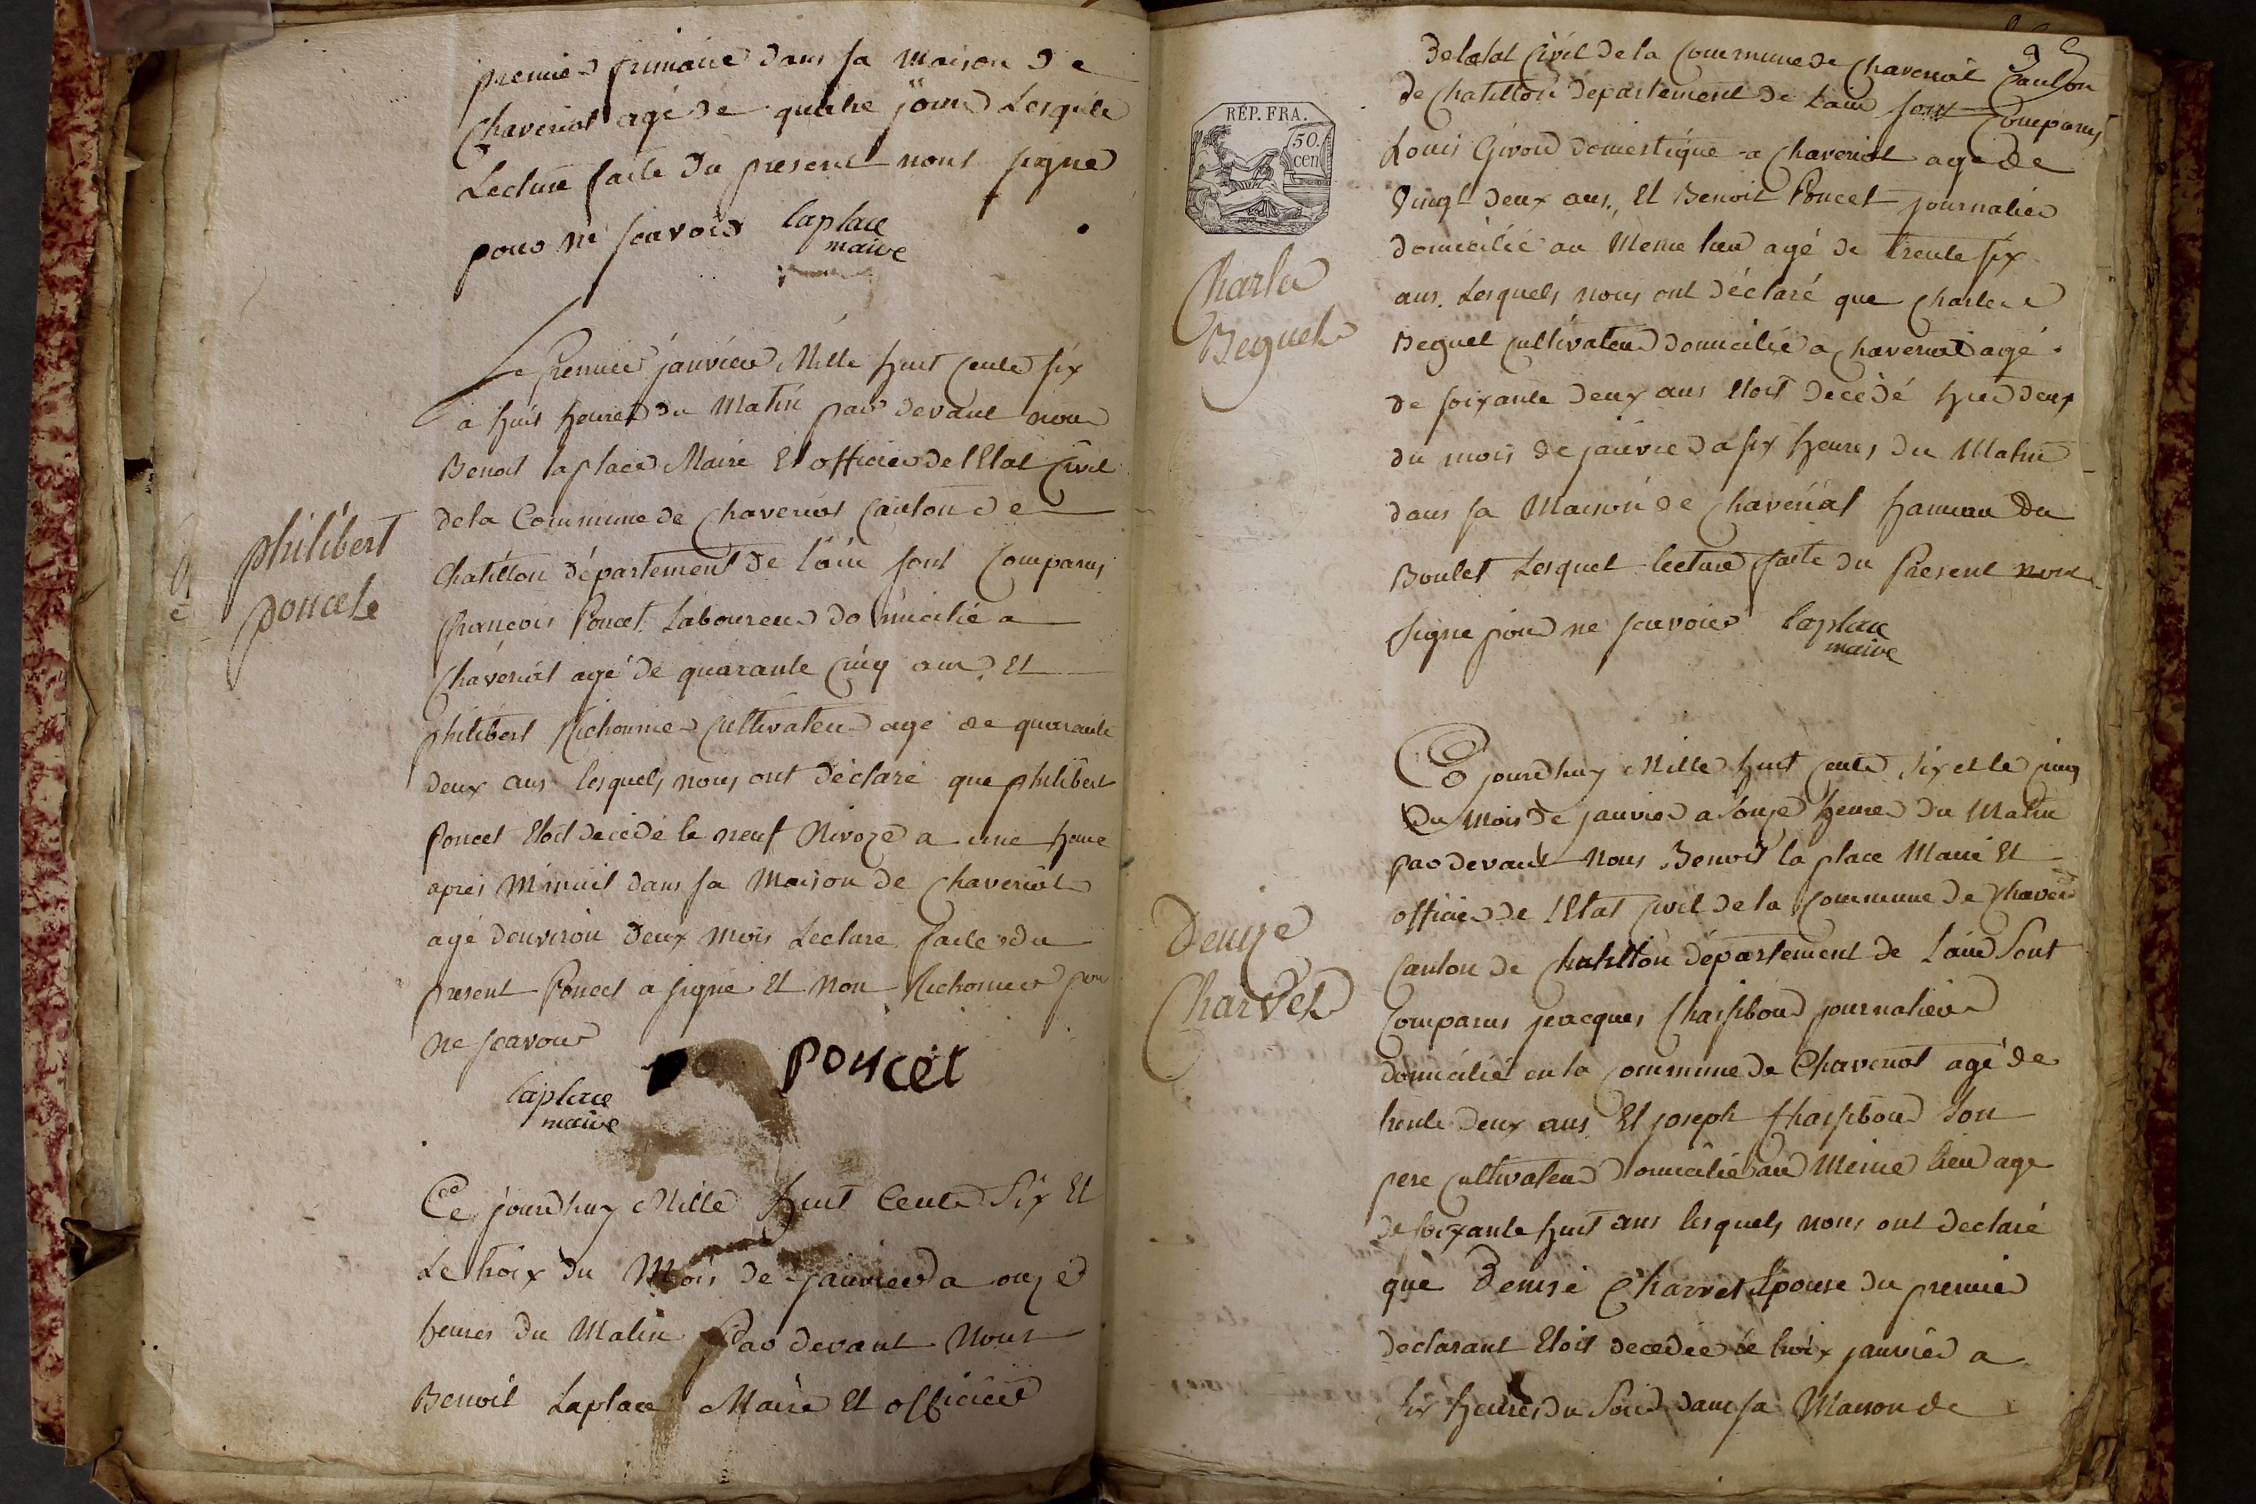 premier frimaire dans sa maison de
Chaveriat agé de quatre jours Lesquels
Lecture faite du present nont signe
pour ne scavoir laplace
maire
Le Premier janvier Mille huit cents six
a huit heures du Matin par devant nous
Benoit laplace Maire Et officier de l'Etat Civil
de la Commune de Chaveriat Canton de
Chatillon département de l'ain sont Comparus
françois Poncet Laboureur domicilié a
Chaveriat agé de quarante Cinq ans Et
philibert Richonnier Cultivateur agé de quarante
deux ans lesquels nous ont déclaré que philibert
Poncet Etoit décédé le neuf Nivoze a une heure
apres Minuit dans sa Maison de Chaveriat
agé denviron deux mois Lecture faite du
present Poncet a signé Et non Richonnier pour
ne scavoir
philibert
poncet
poncet
laplace
maire
Ce jourdhuy Mille huit Cents Six Et
Le troix du Mois de janvier a onze
heures du Matin Par devant Nous
Benoit Laplace Maire Et officier
REP. FRA.
50.
cen
De letat Civil de la Commune de Chaveriat Canton
de Chatillon département de Lain sont Comparus
Louis Girou domestique a Chaveriat agé de
Vingt deux ans, Et Benoit Poncet journalier
domicilié au Meme lieu agé de trente six
ans. Lesquels nous ont déclaré que Charle
Beguet Cultivateur domicilié a Chaveriat agé
de soixante deux ans Etoit décédé hier deux
du mois de janvier a six heures du Matin
dans sa Maison de Chaveriat hameau du
Boulet Lesquel lecture faite du Présent nont
signe pour ne scavoir laplace
maire
Charle
Beguet
Ce jourdhuy Mille huit cents six et le cinq
Du Mois de janvier a onze heures du Matin
par devant Nous Benoit la place Maire Et
officier de l'Etat Civil de la Commune de Chaveriat
Canton de Chatillon département de Lain Sont
Comparus jeacques domicilié en la Commune de Chaveriat agé de
trente deux ans Et joseph son
pere Cultivateur domicilié au Meme lieu age
de soixante huit ans lesquels nous ont declaré
que Denise Charvet Epouse du premier
declarant Etoit decedée le troix janvier a
six heures du Soir dans sa Maison de
Denise
Charvet